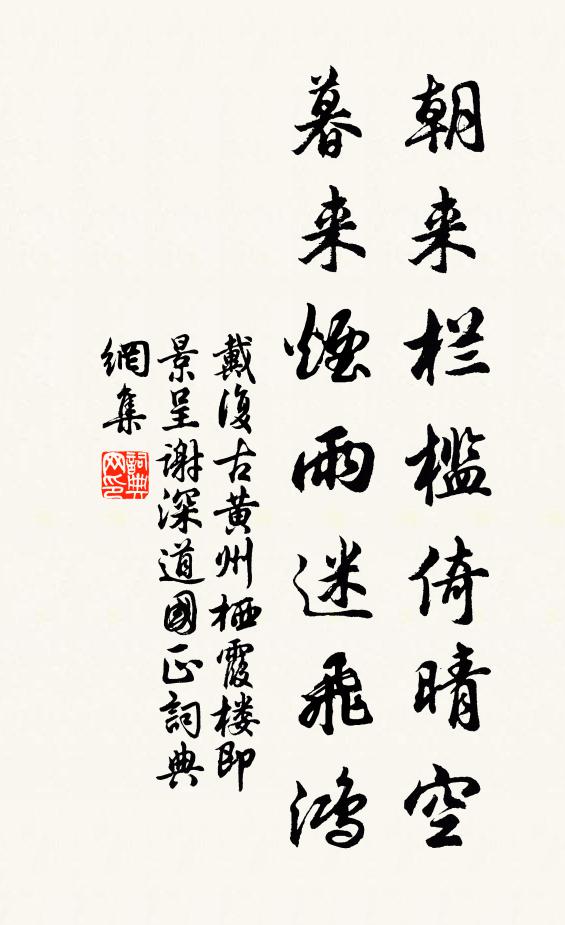 朝来栏槛倚晴空
暮来烟雨迷飛鴻
戴復古黄州栖霞楼即
景呈谢深道國正詞典
網集
詞典
网印